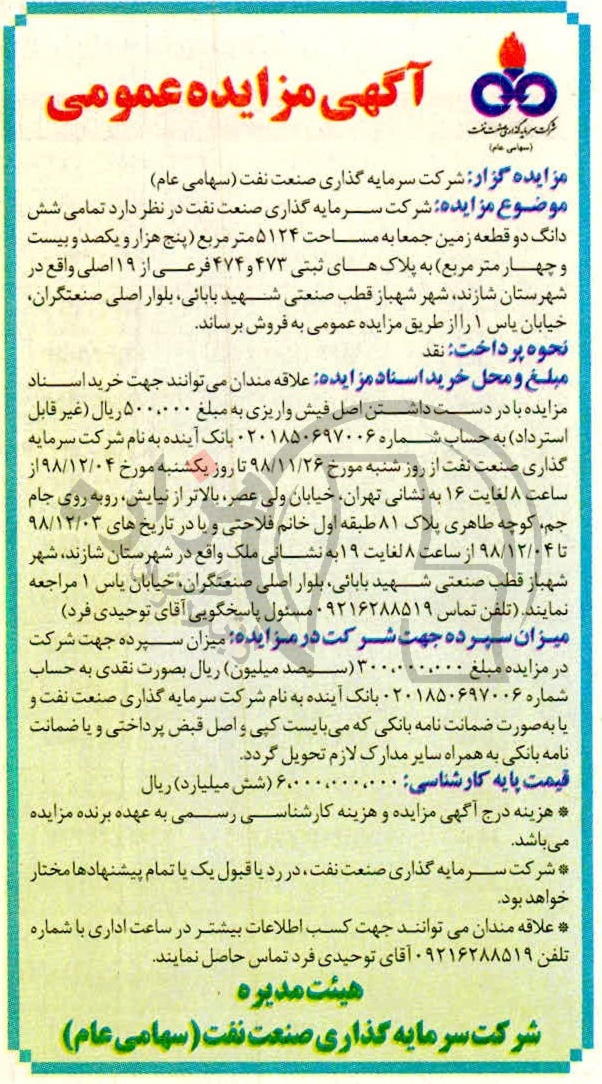 شرکت سرمایه گذاری صنعت نفت
(سهامی عام)
آگهی مزایده عمومی
مزایده گزار: شرکت سرمایه گذاری صنعت نفت (سهامی عام)
موضوع مزایده: شرکت سرمایه گذاری صنعت نفت در نظر دارد تمامی شش
دانگ دو قطعه زمین جمعا به مساحت ۵۱۲۴ متر مربع (پنج هزار و یکصد و بیست
و چهار متر مربع) به پلاک های ثبتی ۴۷۳ و ۴۷۴ فرعی از ۱۹ اصلی واقع در
شهرستان شازند، شهر شهباز قطب صنعتی شهید بابائی، بلوار اصلی صنعتگران،
خیابان یاس ۱ را از طریق مزایده عمومی به فروش برساند.
نحوه پرداخت: نقد
مبلغ و محل خرید اسناد مزایده: علاقه مندان می توانند جهت خرید اسناد
مزایده با در دست داشتن اصل فیش واریزی به مبلغ ۵۰۰,۰۰۰ ریال (غیر قابل
استرداد) به حساب شماره ۰۲۰۱۸۵۰۶۹۷۰۰۶ بانک آینده به نام شرکت سرمایه
گذاری صنعت نفت از روز شنبه مورخ ۹۸/۱۱/۲۶ تا روز یکشنبه مورخ ۹۸/۱۲/۰۴ از
ساعت ۸ لغایت ۱۶ به نشانی تهران، خیابان ولی عصر، بالاتر از نیایش، روبه روی جام
جم، کوچه طاهری پلاک ۸۱ طبقه اول خانم فلاحتی و یا در تاریخ های ۹۸/۱۲/۰۳
تا ۹۸/۱۲/۰۴ از ساعت ۸ لغایت ۱۹ به نشانی ملک واقع در شهرستان شازند، شهر
شهباز قطب صنعتی شهید بابائی، بلوار اصلی صنعتگران، خیابان یاس ۱ مراجعه
نمایند. (تلفن تماس ۰۹۲۱۶۲۸۸۵۱۹ مسئول پاسخگویی آقای توحیدی فرد)
میزان سپرده جهت شرکت در مزایده: میزان سپرده جهت شرکت
در مزایده مبلغ ۳۰۰,۰۰۰,۰۰۰ (سیصد میلیون) ریال بصورت نقدی به حساب
شماره ۰۲۰۱۸۵۰۶۹۷۰۰۶ بانک آینده به نام شرکت سرمایه گذاری صنعت نفت و
یا به صورت ضمانت نامه بانکی که می بایست کپی و اصل قبض پرداختی و یا ضمانت
نامه بانکی به همراه سایر مدارک لازم تحویل گردد.
قیمت پایه کارشناسی: ۶,۰۰۰,۰۰۰,۰۰۰ (شش میلیارد) ریال
* هزینه درج آگهی مزایده و هزینه کارشناسی رسمی به عهده برنده مزایده
می باشد.
* شرکت سرمایه گذاری صنعت نفت، در رد یا قبول یک یا تمام پیشنهادها مختار
خواهد بود.
* علاقه مندان می توانند جهت کسب اطلاعات بیشتر در ساعت اداری با شماره
تلفن ۰۹۲۱۶۲۸۸۵۱۹ آقای توحیدی فرد تماس حاصل نمایند.
هیئت مدیره
شرکت سرمایه گذاری صنعت نفت (سهامی عام)